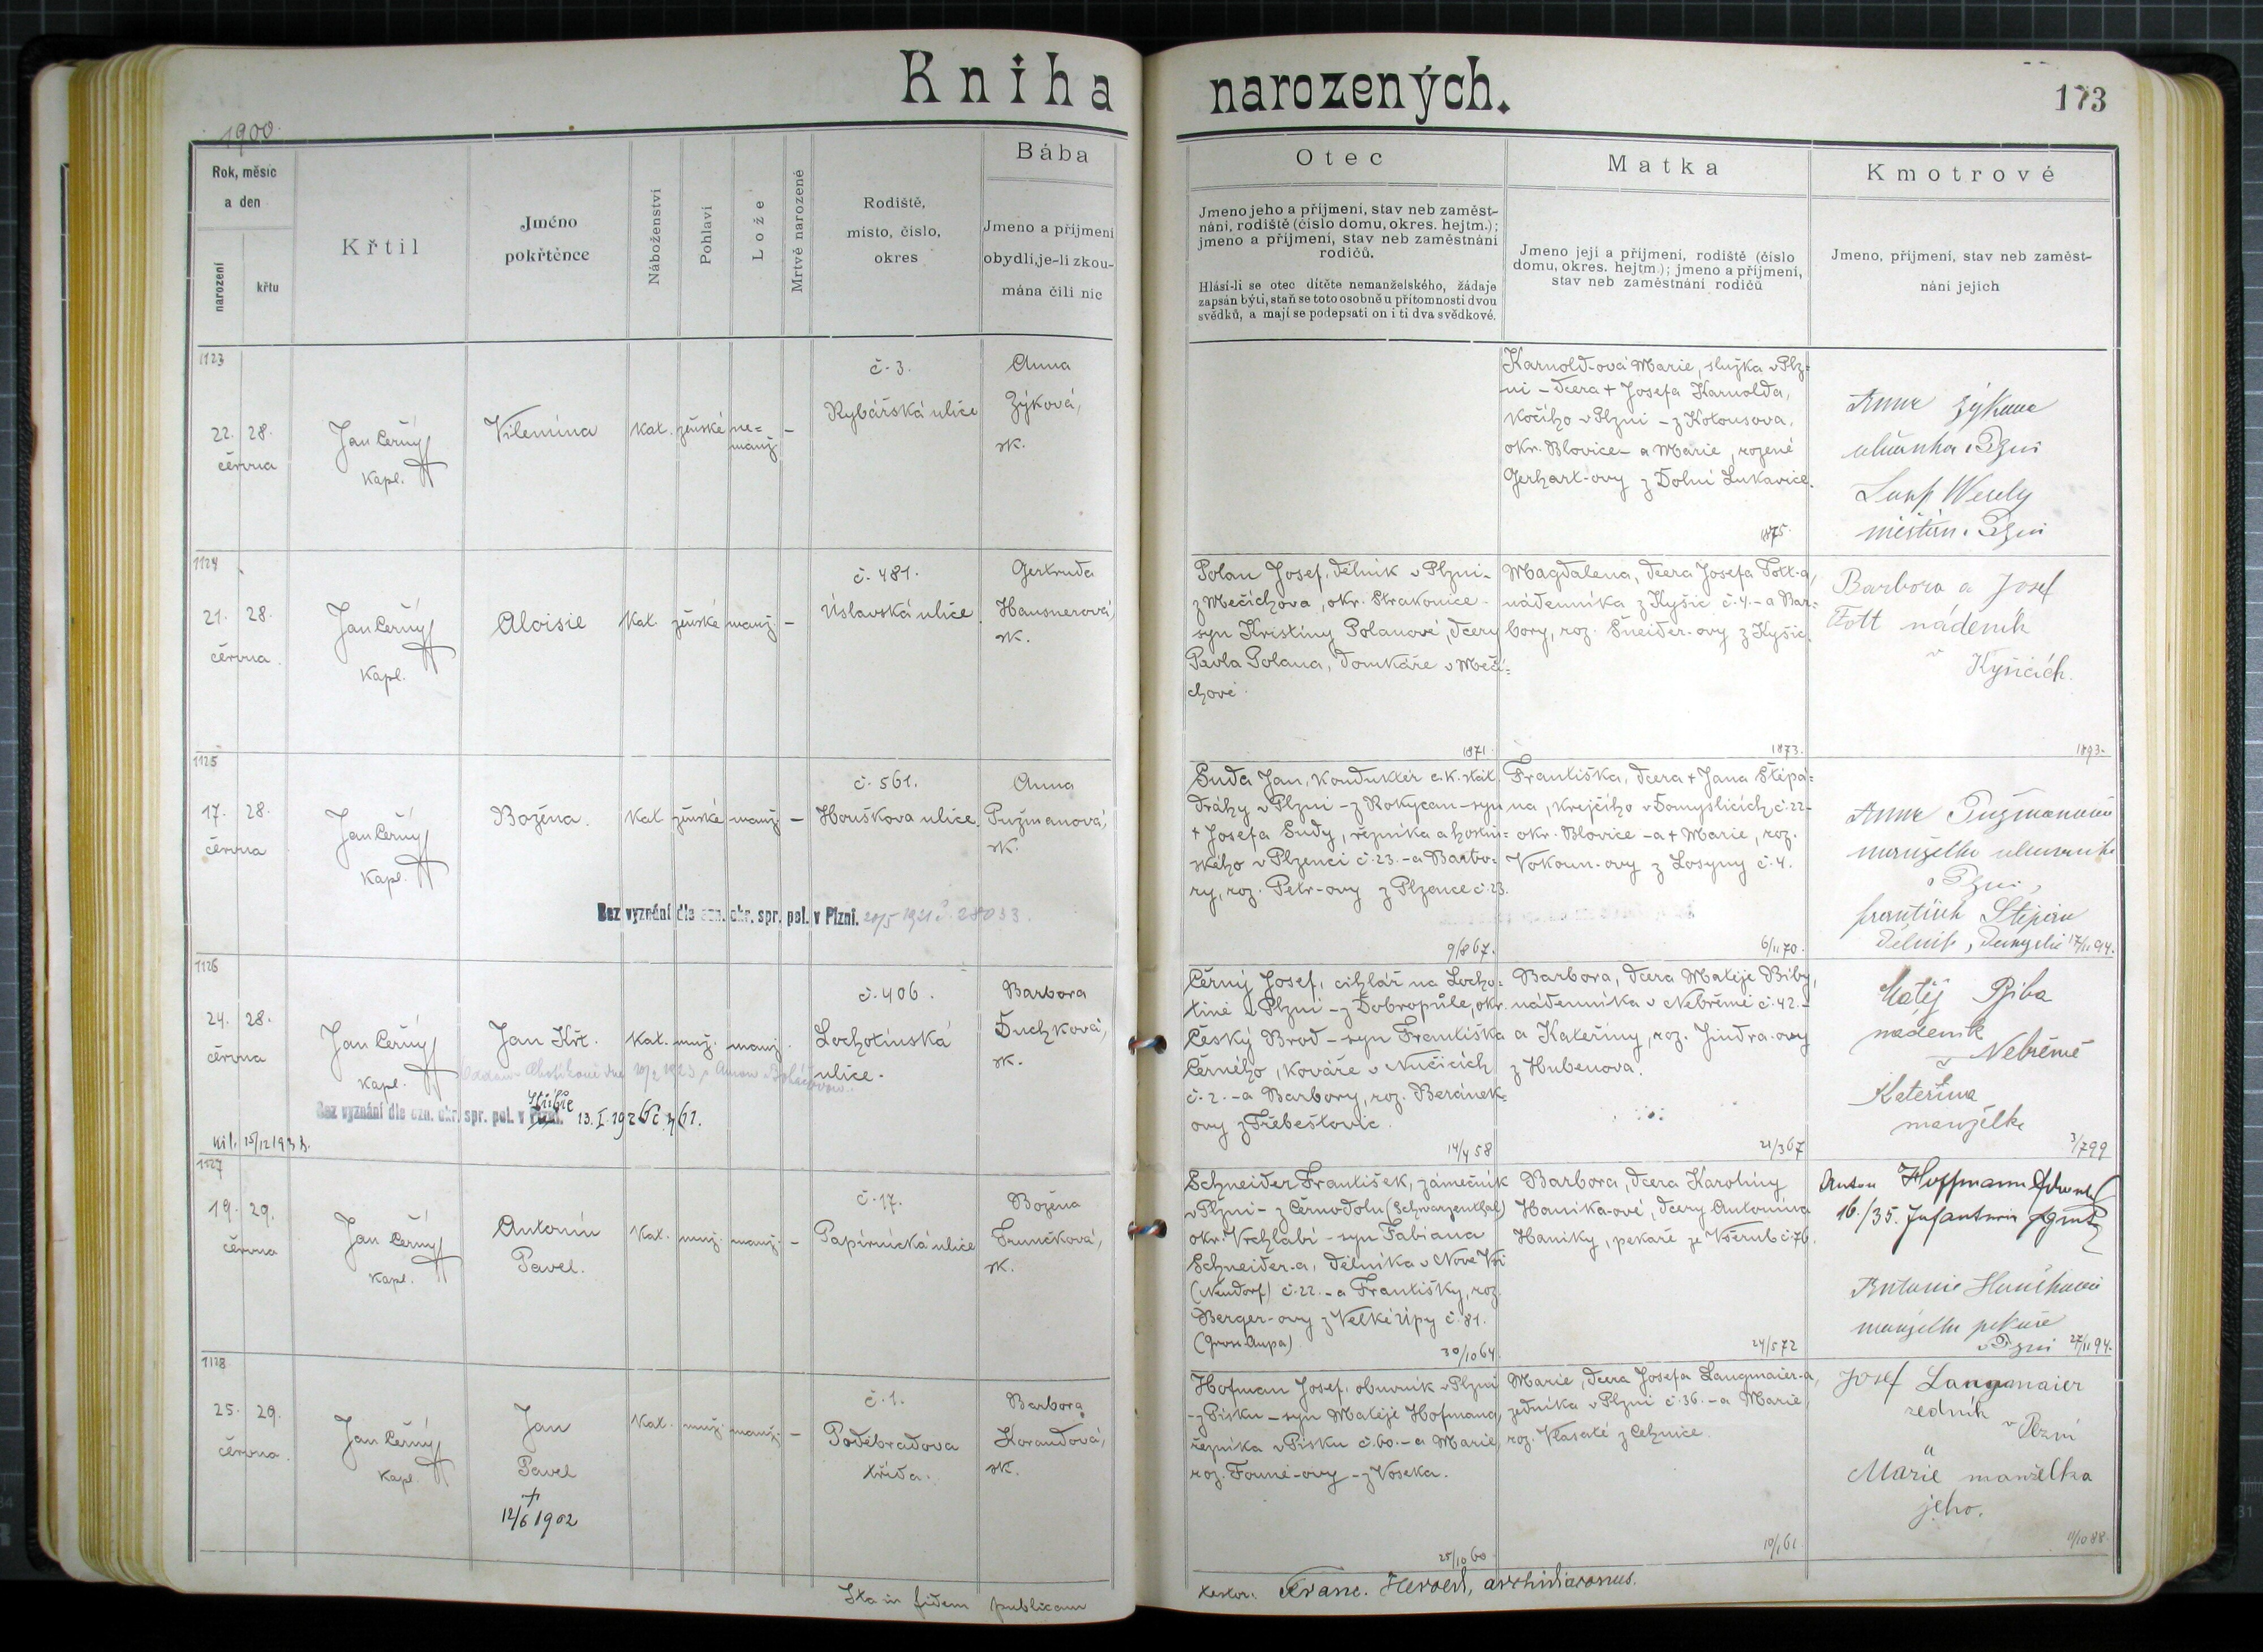 Kniha narozených.
173
1900
Rok, měsíc
a den
narození
křtu
Křtil
Jméno
pokřtěnce
Náboženství
Pohlaví
Lože
Mrtvě narozené
Rodiště,
místo, číslo,
okres
Bába
Jmeno a příjmení
obydlí, je-li zkou-
mána čili nic
Otec
Jmeno jeho a příjmení, stav neb zaměst-
nání, rodiště (číslo domu, okres. hejtm.);
jmeno a příjmení, stav neb zaměstnání
rodičů.
Hlásí-li se otec dítěte nemanželského, žádaje
zapsán býti, staň se toto osobně u přítomnosti dvou
svědků, a mají se podepsati on i ti dva svědkové.
Matka
Jmeno její a příjmení, rodiště (číslo
domu, okres. hejtm.); jmeno a příjmení,
stav neb zaměstnání rodičů
Kmotrové
Jmeno, příjmení, stav neb zaměst-
nání jejich
1123
22. 28.
června
Jan Černý
kapl.
Vilemína
kat. ženské ne=
manž. –
č. 3.
Rybářská ulice
Anna
Zýková,
zk.
Karnold-ová Marie, služka v Plz=
ni – dcera + Josefa Karnolda,
kočího v Plzni – z Kotousova,
okr. Blovice – a Marie, rozené
Gerhart-ovy z Dolní Lukavice.
1875.
Anna Zýkova
Plzni
Wesely
měštan v Plzni
1124
21. 28.
června.
Jan Černý
kapl.
Aloisie
kat. ženské manž. –
č. 481.
Úslavská ulice.
Gertruda
Hausnerová,
zk.
Polan Josef, dělník v Plzni –
z Mečichova, okr. Strakonice –
syn Kristiny Polanové, dcery
Pavla Polana, domkáře v Meči=
chově.
1871.
Magdalena, dcera Josefa Fott-a,
nádenníka z Kyšic č. 4. – a Bar=
bory, roz. Šneider-ovy z Kyšic.
1873.
Barbora a Josef
Fott nádeník
v
Kyšicích.
1893.
1125
17. 28.
června
Jan Černý
kapl.
Božena.
kat. ženské manž. –
č. 561.
Houškova ulice.
Anna
Pužmanová,
zk.
Bez vyznání dle ozn. okr. spr. pol. v Plzni. 20/5 1921 č. 28033
Suda Jan, konduktér c. k. stát.
dráhy v Plzni – z Rokycan – syn
+ Josefa Sudy, řezníka a hostin=
ského v Plzenci č. 23. – a Barbo=
ry, roz. Petr-ovy z Plzence č. 23.
9/8 67.
Františka, dcera + Jana Štěpá=
na, krejčího v Domyslicích, č. 22 –
okr. Blovice – a + Marie, roz.
Vokoun-ovy z Losyny č. 4.
6/11 70.
Anna Pužmanová
manželka
v Plzni,
František Štěpán
dělník, 17/11 94.
1126
24. 28.
června
Jan Černý
kapl.
Jan Křt.
kat. muž. manž.
č. 406.
Lochotínská
ulice.
Barbora
Duchková,
zk.
Bez vyznání dle ozn. okr. spr. pol. v Plzni. Stříbře 13. I. 1926
15/12 1933.
Černý Josef, cihlář na Locho=
tíně v Plzni – z Dobropůle, okr.
Český Brod – syn Františka
Černého, kováře v Nučicích
č. 2. – a Barbory, roz. Beránek=
ovy z Třebešovic.
14/4 58
Barbora, dcera Matěje Biby,
nádenníka v Nebřemě č. 42. –
a Kateřiny, roz. Jindra-ovy
z Hubenova.
21/3 67
Matěj Biba
nádeník
z Nebřemě
Kateřina
manželka
3/7 99
1127
19. 29.
června
Jan Černý
kapl.
Antonín
Pavel.
kat. muž. manž. –
č. 17.
Papírnická ulice
Božena
Trunčková,
zk.
Schneider František, zámečník
v Plzni – z Černodolu (Schwarzenthal)
okr. Vrchlabí – syn Fabiana
Schneider-a, dělníka v Nové Vsi
(Neudorf) č. 22. – a Františky, roz.
Berger-ovy z Velké Úpy č. 81.
(Gross-Aupa)
30/10 64.
Barbora, dcera Karolíny
Hanika-ové, dcery Antonína
Haniky, pekaře ze Všerub č. 76.
24/5 72
Anton Hoffmann
16./35. Infanterie
Antonie
manželka pekaře
v Plzni 27/11 94.
1128
25. 29.
června.
Jan Černý
kapl.
Jan
Pavel
+
12/6 1902
kat. muž. manž. –
č. 1.
Poděbradova
třída.
Barbora
Korandová,
zk.
Hofman Josef, obuvník v Plzni
– z Písku – syn Matěje Hofmana,
řezníka v Písku č. 60. – a Marie,
roz. Founě-ovy – z Voseka.
25/10 60
Marie, dcera Josefa Langmaier-a,
zedníka v Plzni č. 36. – a Marie,
roz. Vlasaté z Cehnice.
10/1 61
Josef Langmaier
zedník v Plzni
a
Marie manželka
jeho.
11/10 88
Ita in fidem publicam
testor: Franc. Herold, archidiaconus.